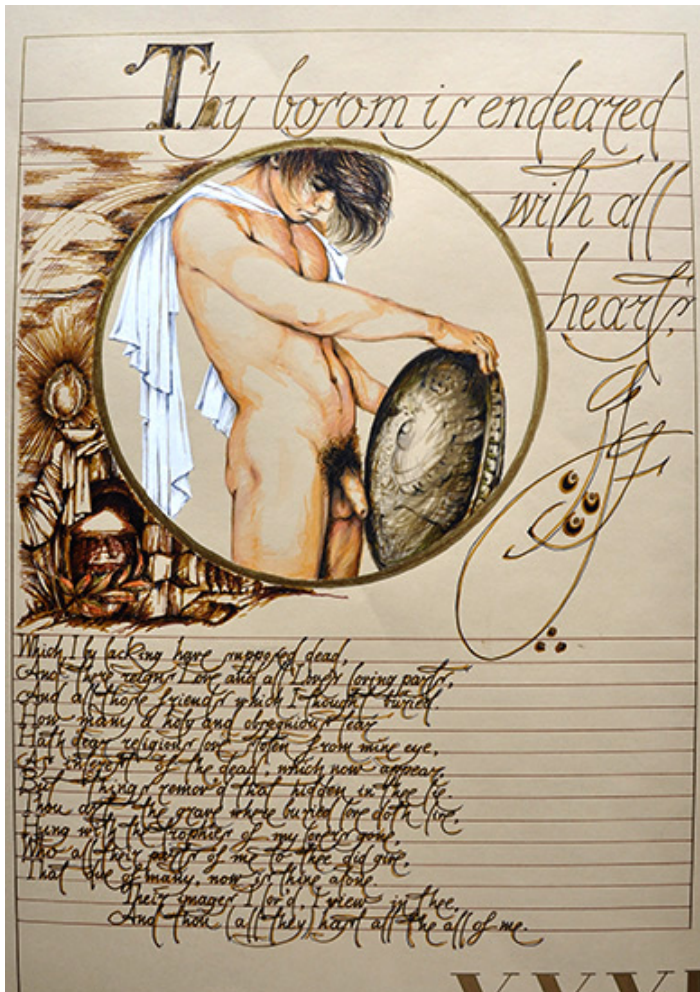 Thy bosom is endeared
with all
hearts,
Which I by lacking have supposed dead,
And there reigns Love and all Loves loving parts,
And all those friends which I thought buried.
How many a holy and obsequious tear
Hath dear religious love stolen from mine eye,
As interest of the dead, which now appear,
But things remov'd that hidden in thee lie.
Thou art the grave where buried love doth live,
Hung with the trophies of my lovers gone,
Who all their parts of me to thee did give,
That due of many, now is thine alone.
Their images I lov'd, I view in thee,
And thou (all they) hast all the all of me.